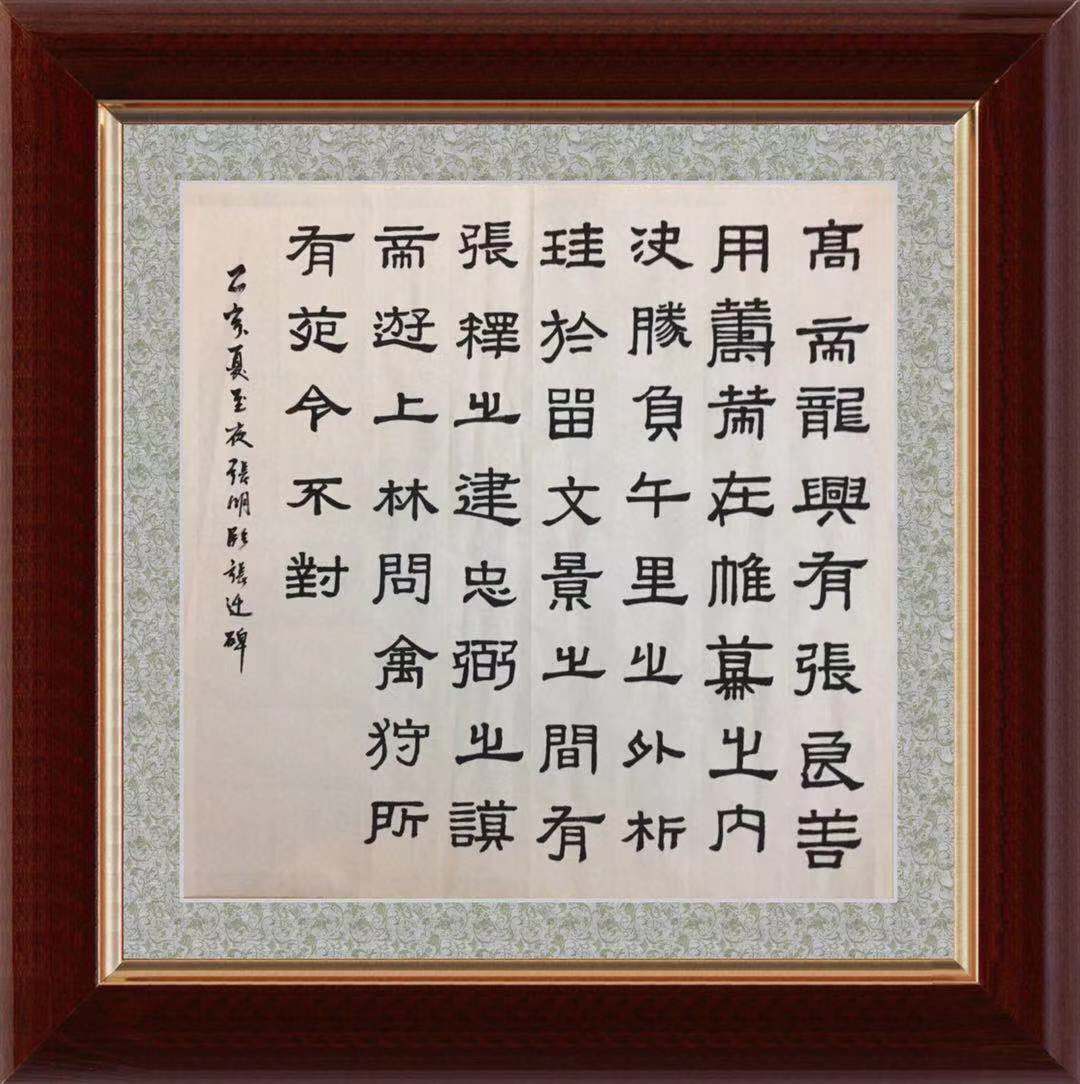 高帝龍興有張良善
用籌策在帷幕之内
决勝負千里之外析
珪於留文景之間有
張釋之建忠弼之謨
帝遊上林問禽狩所
有苑令不對
夏至夜張明臨張迁碑